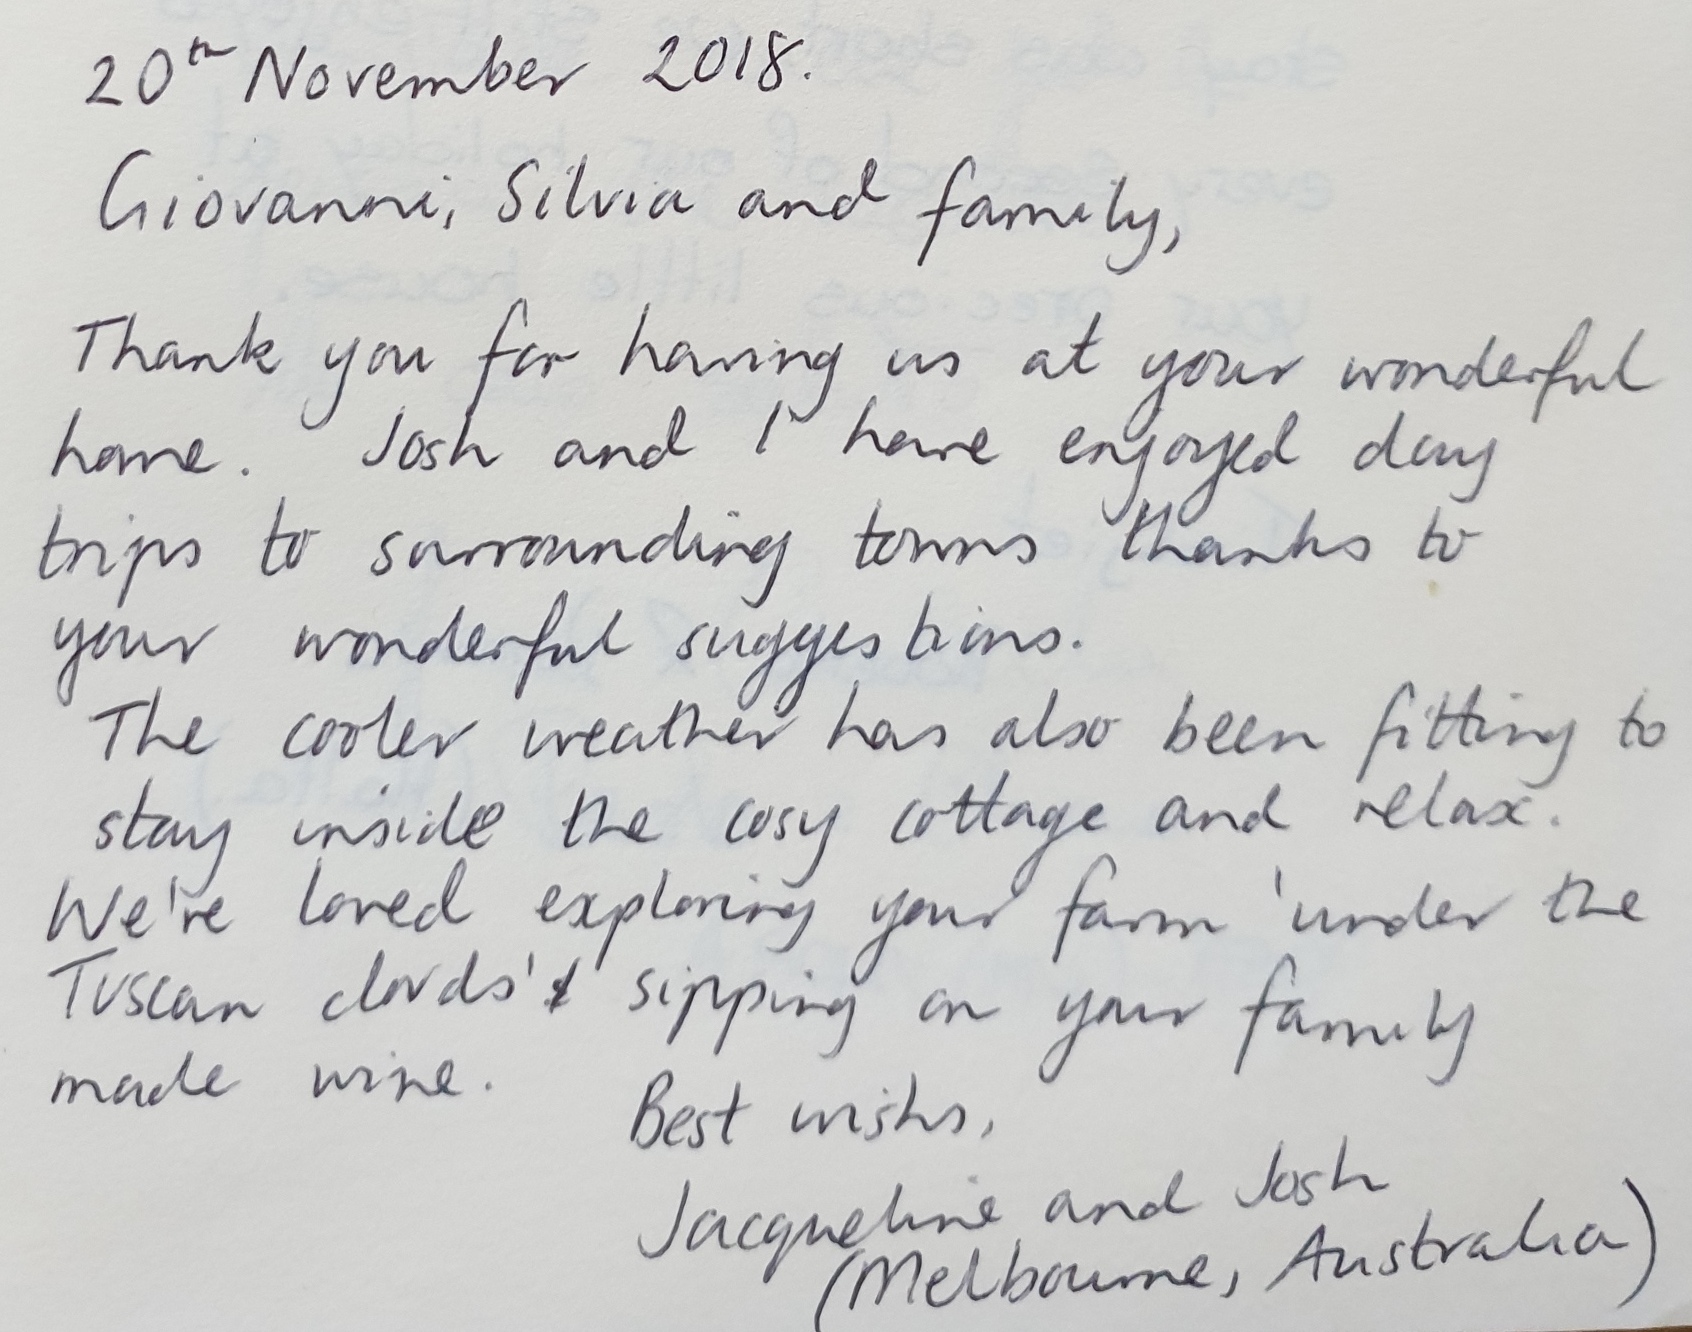 20th November 2018.
Giovanni, Silvia and family,
Thank you for having us at your wonderful
home. Josh and I have enjoyed day
trips to surrounding towns thanks to
your wonderful suggestions.
The cooler weather has also been fitting to
stay inside the cosy cottage and relax.
We're loved exploring your farm 'under the
Tuscan clouds' & sipping on your family
made wine.
Best wishes,
Jacqueline and Josh
(Melbourne, Australia)